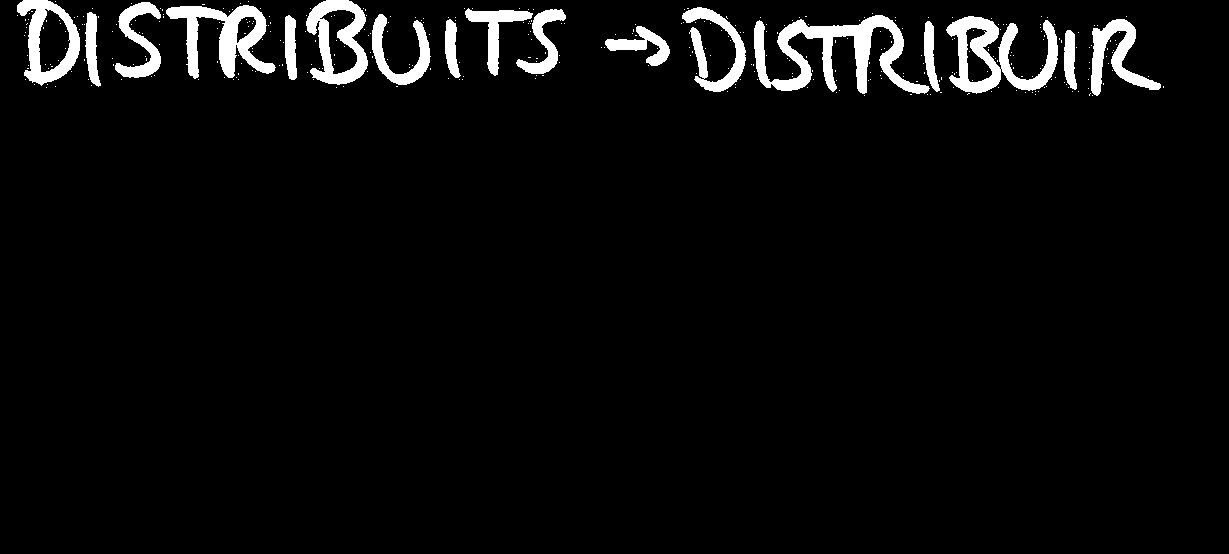 DISTRIBUITS → DISTRIBUIR